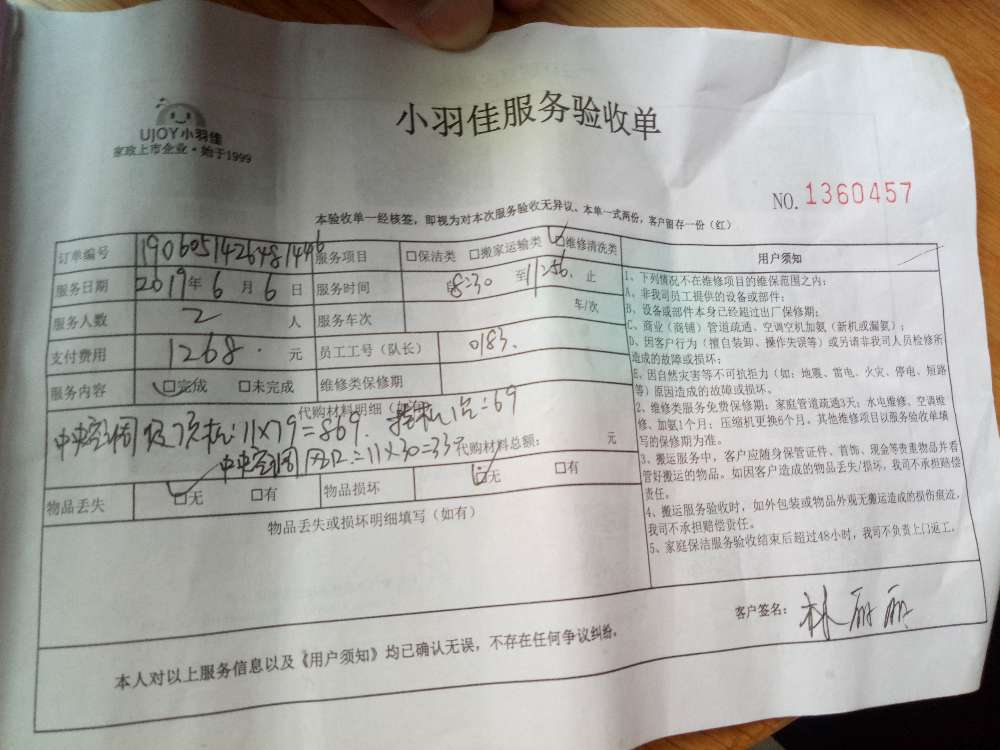 UJOY小羽佳
家政上市企业·始于1999
小羽佳服务验收单
NO.1360457
本验收单一经核签，即视为对本次服务验收无异议、本单一式两份，客户留存一份（红）
订单编号 1906051426481446 服务项目 □保洁类 □搬家运输类 □维修清洗类
服务日期 2019年6月6日 服务时间 8:30 至 11:56 止
服务人数 2 人 服务车次 车/次
支付费用 1268. 元 员工工号（队长） 0183.
服务内容 □完成 □未完成 维修类保修期
代购材料明细
中央空调吸顶机:11×79=869. 挂机1台=69
中央空调风口:=11×30=33 代购材料总额: 元
物品丢失 □无 □有 物品损坏 □无 □有
物品丢失或损坏明细填写（如有）
用户须知
1、下列情况不在维修项目的维保范围之内:
A、非我司员工提供的设备或部件;
B、设备或部件本身已经超过出厂保修期;
C、商业（商铺）管道疏通、空调空机加氨（新机或漏氨）;
D、因客户行为（擅自装卸、操作失误等）或另请非我司人员检修所
造成的故障或损坏;
E、因自然灾害等不可抗拒力（如: 地震、雷电、火灾、停电、短路
等）原因造成的故障或损坏。
2、维修类服务免费保修期: 家庭管道疏通3天; 水电维修、空调维
修、加氨1个月; 压缩机更换6个月。其他维修项目以服务验收单填
写的保修期为准。
3、搬运服务中，客户应随身保管证件、首饰、现金等贵重物品并看
管好搬运的物品。如因客户造成的物品丢失/损坏，我司不承担赔偿
责任。
4、搬运服务验收时，如外包装或物品外观无搬运造成的损伤痕迹，
我司不承担赔偿责任。
5、家庭保洁服务验收结束后超过48小时，我司不负责上门返工。
客户签名: 林丽丽
本人对以上服务信息以及《用户须知》均已确认无误，不存在任何争议纠纷。